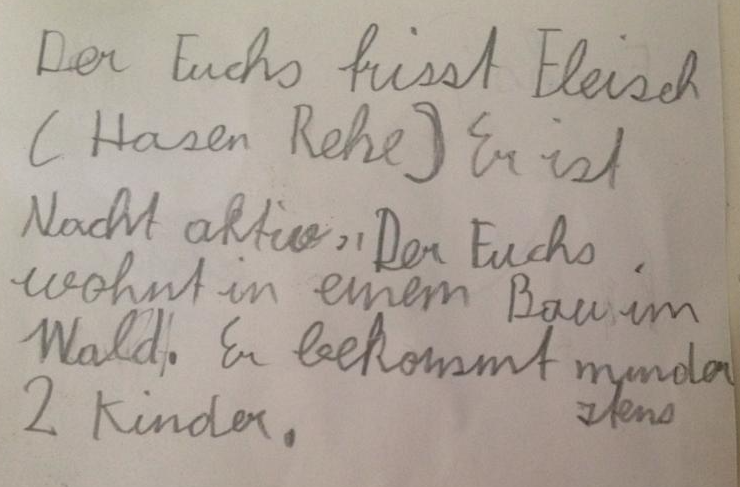 Der Fuchs frisst Fleisch
(Hasen Rehe) Er ist
Nacht aktiv. "Der Fuchs
wohnt in einem Bau im
Wald. Er bekommt minder
stens
2 Kinder.